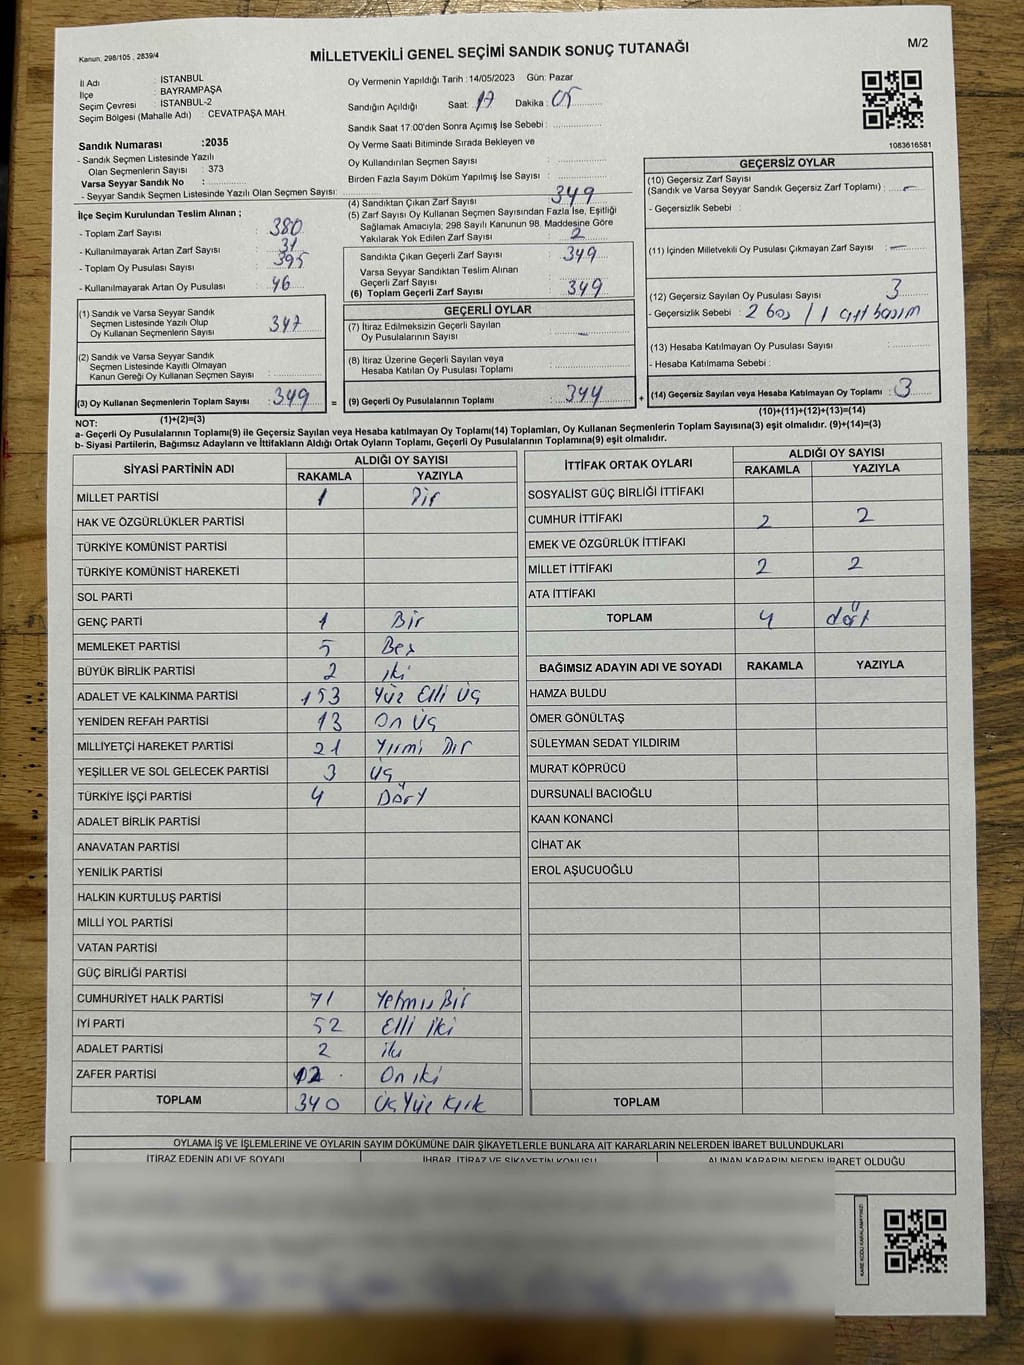 Kanun, 298/105 , 2839/4
MİLLETVEKİLİ GENEL SEÇİMİ SANDIK SONUÇ TUTANAĞI
M/2
İl Adı : İSTANBUL
İlçe : BAYRAMPAŞA
Seçim Çevresi : İSTANBUL-2
Seçim Bölgesi (Mahalle Adı) : CEVATPAŞA MAH
Sandık Numarası :2035
- Sandık Seçmen Listesinde Yazılı
Olan Seçmenlerin Sayısı : 373
Varsa Seyyar Sandık No :
- Seyyar Sandık Seçmen Listesinde Yazılı Olan Seçmen Sayısı:
Oy Vermenin Yapıldığı Tarih :14/05/2023 Gün: Pazar
Sandığın Açıldığı Saat: 17 Dakika : 05
Sandık Saat 17:00'den Sonra Açımış İse Sebebi :
Oy Verme Saati Bitiminde Sırada Bekleyen ve
Oy Kullandırılan Seçmen Sayısı :
Birden Fazla Sayım Döküm Yapılmış İse Sayısı :
1083616581
İlçe Seçim Kurulundan Teslim Alınan ;
- Toplam Zarf Sayısı : 380
- Kullanılmayarak Artan Zarf Sayısı : 31
- Toplam Oy Pusulası Sayısı : 395
- Kullanılmayarak Artan Oy Pusulası : 46
(1) Sandık ve Varsa Seyyar Sandık
Seçmen Listesinde Yazılı Olup
Oy Kullanan Seçmenlerin Sayısı : 347
(2) Sandık ve Varsa Seyyar Sandık
Seçmen Listesinde Kayıtlı Olmayan
Kanun Gereği Oy Kullanan Seçmen Sayısı :
(3) Oy Kullanan Seçmenlerin Toplam Sayısı : 349
(1)+(2)=(3)
(4) Sandıktan Çıkan Zarf Sayısı : 349
(5) Zarf Sayısı Oy Kullanan Seçmen Sayısından Fazla İse, Eşitliği
Sağlamak Amacıyla; 298 Sayılı Kanunun 98. Maddesine Göre
Yakılarak Yok Edilen Zarf Sayısı : 2
Sandıkta Çıkan Geçerli Zarf Sayısı : 349
Varsa Seyyar Sandıktan Teslim Alınan
Geçerli Zarf Sayısı :
(6) Toplam Geçerli Zarf Sayısı : 349
GEÇERLİ OYLAR
(7) İtiraz Edilmeksizin Geçerli Sayılan
Oy Pusulalarının Sayısı : -
(8) İtiraz Üzerine Geçerli Sayılan veya
Hesaba Katılan Oy Pusulası Toplamı :
= (9) Geçerli Oy Pusulalarının Toplamı : 344
GEÇERSİZ OYLAR
(10) Geçersiz Zarf Sayısı
(Sandık ve Varsa Seyyar Sandık Geçersiz Zarf Toplamı) : -
- Geçersizlik Sebebi :
(11) İçinden Milletvekili Oy Pusulası Çıkmayan Zarf Sayısı : -
(12) Geçersiz Sayılan Oy Pusulası Sayısı : 3
- Geçersizlik Sebebi : 2 boş / 1 çift basım
(13) Hesaba Katılmayan Oy Pusulası Sayısı :
- Hesaba Katılmama Sebebi :
+ (14) Geçersiz Sayılan veya Hesaba Katılmayan Oy Toplamı : 3
(10)+(11)+(12)+(13)=(14)
NOT:
a- Geçerli Oy Pusulalarının Toplamı(9) ile Geçersiz Sayılan veya Hesaba katılmayan Oy Toplamı(14) Toplamları, Oy Kullanan Seçmenlerin Toplam Sayısına(3) eşit olmalıdır. (9)+(14)=(3)
b- Siyasi Partilerin, Bağımsız Adayların ve İttifakların Aldığı Ortak Oyların Toplamı, Geçerli Oy Pusulalarının Toplamına(9) eşit olmalıdır.
SİYASİ PARTİNİN ADI
ALDIĞI OY SAYISI
RAKAMLA YAZIYLA
MİLLET PARTİSİ 1 Bir
HAK VE ÖZGÜRLÜKLER PARTİSİ
TÜRKİYE KOMÜNİST PARTİSİ
TÜRKİYE KOMÜNİST HAREKETİ
SOL PARTİ
GENÇ PARTİ 1 Bir
MEMLEKET PARTİSİ 5 Beş
BÜYÜK BİRLİK PARTİSİ 2 iki
ADALET VE KALKINMA PARTİSİ 153 Yüz Elli Üç
YENİDEN REFAH PARTİSİ 13 On Üç
MİLLİYETÇİ HAREKET PARTİSİ 21 Yirmi Bir
YEŞİLLER VE SOL GELECEK PARTİSİ 3 Üç
TÜRKİYE İŞÇİ PARTİSİ 4 Dört
ADALET BİRLİK PARTİSİ
ANAVATAN PARTİSİ
YENİLİK PARTİSİ
HALKIN KURTULUŞ PARTİSİ
MİLLİ YOL PARTİSİ
VATAN PARTİSİ
GÜÇ BİRLİĞİ PARTİSİ
CUMHURİYET HALK PARTİSİ 71 Yetmiş Bir
İYİ PARTİ 52 Elli iki
ADALET PARTİSİ 2 iki
ZAFER PARTİSİ 12 On iki
TOPLAM 340 Üç Yüz Kırk
İTTİFAK ORTAK OYLARI
ALDIĞI OY SAYISI
RAKAMLA YAZIYLA
SOSYALİST GÜÇ BİRLİĞİ İTTİFAKI
CUMHUR İTTİFAKI 2 2
EMEK VE ÖZGÜRLÜK İTTİFAKI
MİLLET İTTİFAKI 2 2
ATA İTTİFAKI
TOPLAM 4 dört
BAĞIMSIZ ADAYIN ADI VE SOYADI RAKAMLA YAZIYLA
HAMZA BULDU
ÖMER GÖNÜLTAŞ
SÜLEYMAN SEDAT YILDIRIM
MURAT KÖPRÜCÜ
DURSUNALİ BACIOĞLU
KAAN KONANCİ
CİHAT AK
EROL AŞUCUOĞLU
TOPLAM
OYLAMA İŞ VE İŞLEMLERİNE VE OYLARIN SAYIM DÖKÜMÜNE DAİR ŞİKAYETLERLE BUNLARA AİT KARARLARIN NELERDEN İBARET BULUNDUKLARI
İTİRAZ EDENİN ADI VE SOYADI İHBAR, İTİRAZ VE ŞİKAYETİN KONUSU ALINAN KARARIN NEDEN İBARET OLDUĞU
KARE KODU KARALAMAYINIZ!